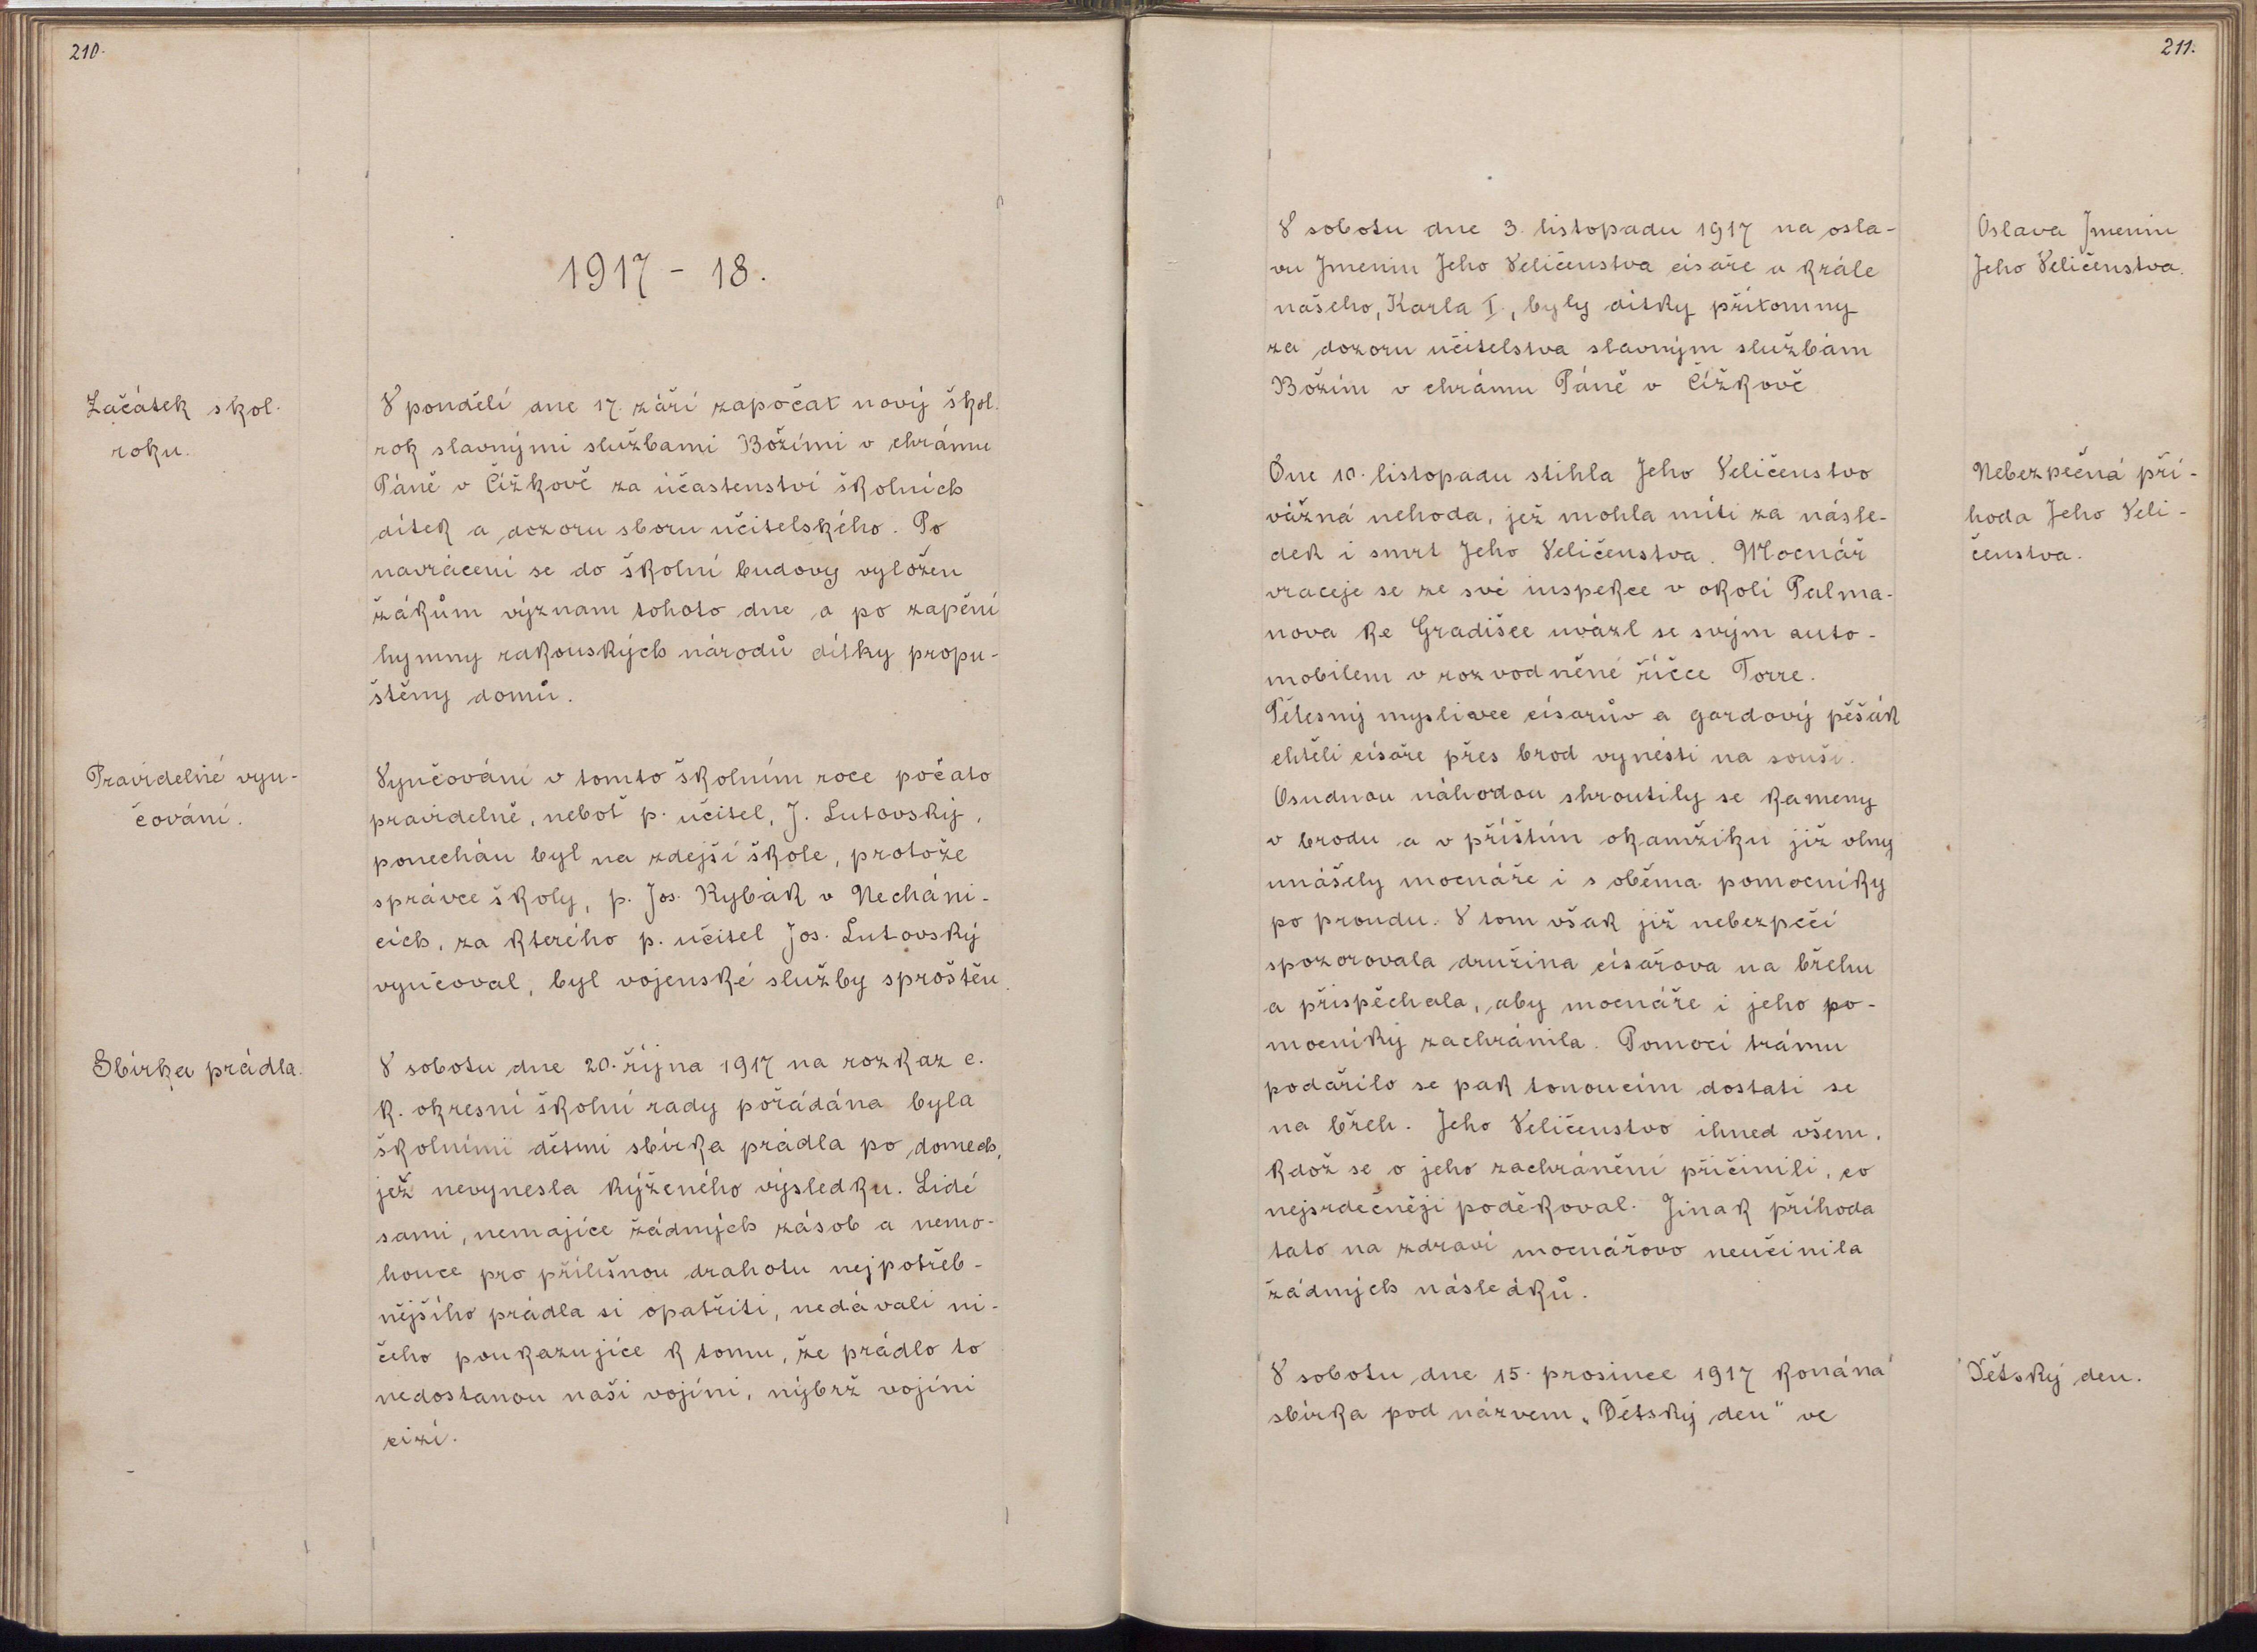 210.
1917 - 18.
Začátek škol.
roku.
V pondělí dne 17. září započat nový škol.
rok slavnými službami Božími v chrámu
Páně v Čížkově za účastenství školních
dítek a dozoru sboru učitelského. Po
navrácení se do školní budovy vyložen
žákům význam tohoto dne a po zapění
hymny rakouských národů dítky propu-
štěny domů.
Pravidelné vyu-
čování.
Vyučování v tomto školním roce počato
pravidelně, neboť p. učitel, J. Lutovský,
ponechán byl na zdejší škole, protože
správce školy, p. Jos. Rybák v Necháni-
cích, za kterého p. učitel Jos. Lutovský
vyučoval, byl vojenské služby sproštěn.
Sbírka prádla.
V sobotu dne 20. října 1917 na rozkaz c.
k. okresní školní rady pořádána byla
školními dětmi sbírka prádla po domech,
jež nevynesla kýženého výsledku. Lidé
sami, nemajíce žádných zásob a nemo-
houce pro přílišnou drahotu nejpotřeb-
nějšího prádla si opatřiti, nedávali ni-
čeho poukazujíce k tomu, že prádlo to
nedostanou naši vojíni, nýbrž vojíni
cizí.
211.
V sobotu dne 3. listopadu 1917 na osla-
vu Jmenin Jeho Veličenstva císaře a krále
našeho, Karla I., byly dítky přítomny
za dozoru učitelstva slavným službám
Božím v chrámu Páně v Čížkově
Oslava Jmenin
Jeho Veličenstva.
Dne 10. listopadu stihla Jeho Veličenstvo
vážná nehoda, jež mohla míti za násle-
dek i smrt Jeho Veličenstva. Mocnář
vraceje se ze své inspekce v okolí Palma-
nova ke Gradišce uvázl se svým auto-
mobilem v rozvodněné říčce Torre.
Tělesný myslivec císařův a gardový pěšák
chtěli císaře přes brod vynésti na souši.
Osudnou náhodou shroutily se kameny
v brodu a v příštím okamžiku již vlny
unášely mocnáře i s oběma pomocníky
po proudu. V tom však již nebezpečí
spozorovala družina císařova na břehu
a přispěchala, aby mocnáře i jeho po-
mocníky zachránila. Pomocí trámu
podařilo se pak tonoucím dostati se
na břeh. Jeho Veličenstvo ihned všem,
kdož se o jeho zachránění přičinili, co
nejsrdečněji poděkoval. Jinak příhoda
tato na zdraví mocnářovo neučinila
žádných následků.
Nebezpečná pří-
hoda Jeho Veli-
čenstva.
V sobotu dne 15. prosince 1917 konána
sbírka pod názvem „Dětský den" ve
Dětský den.